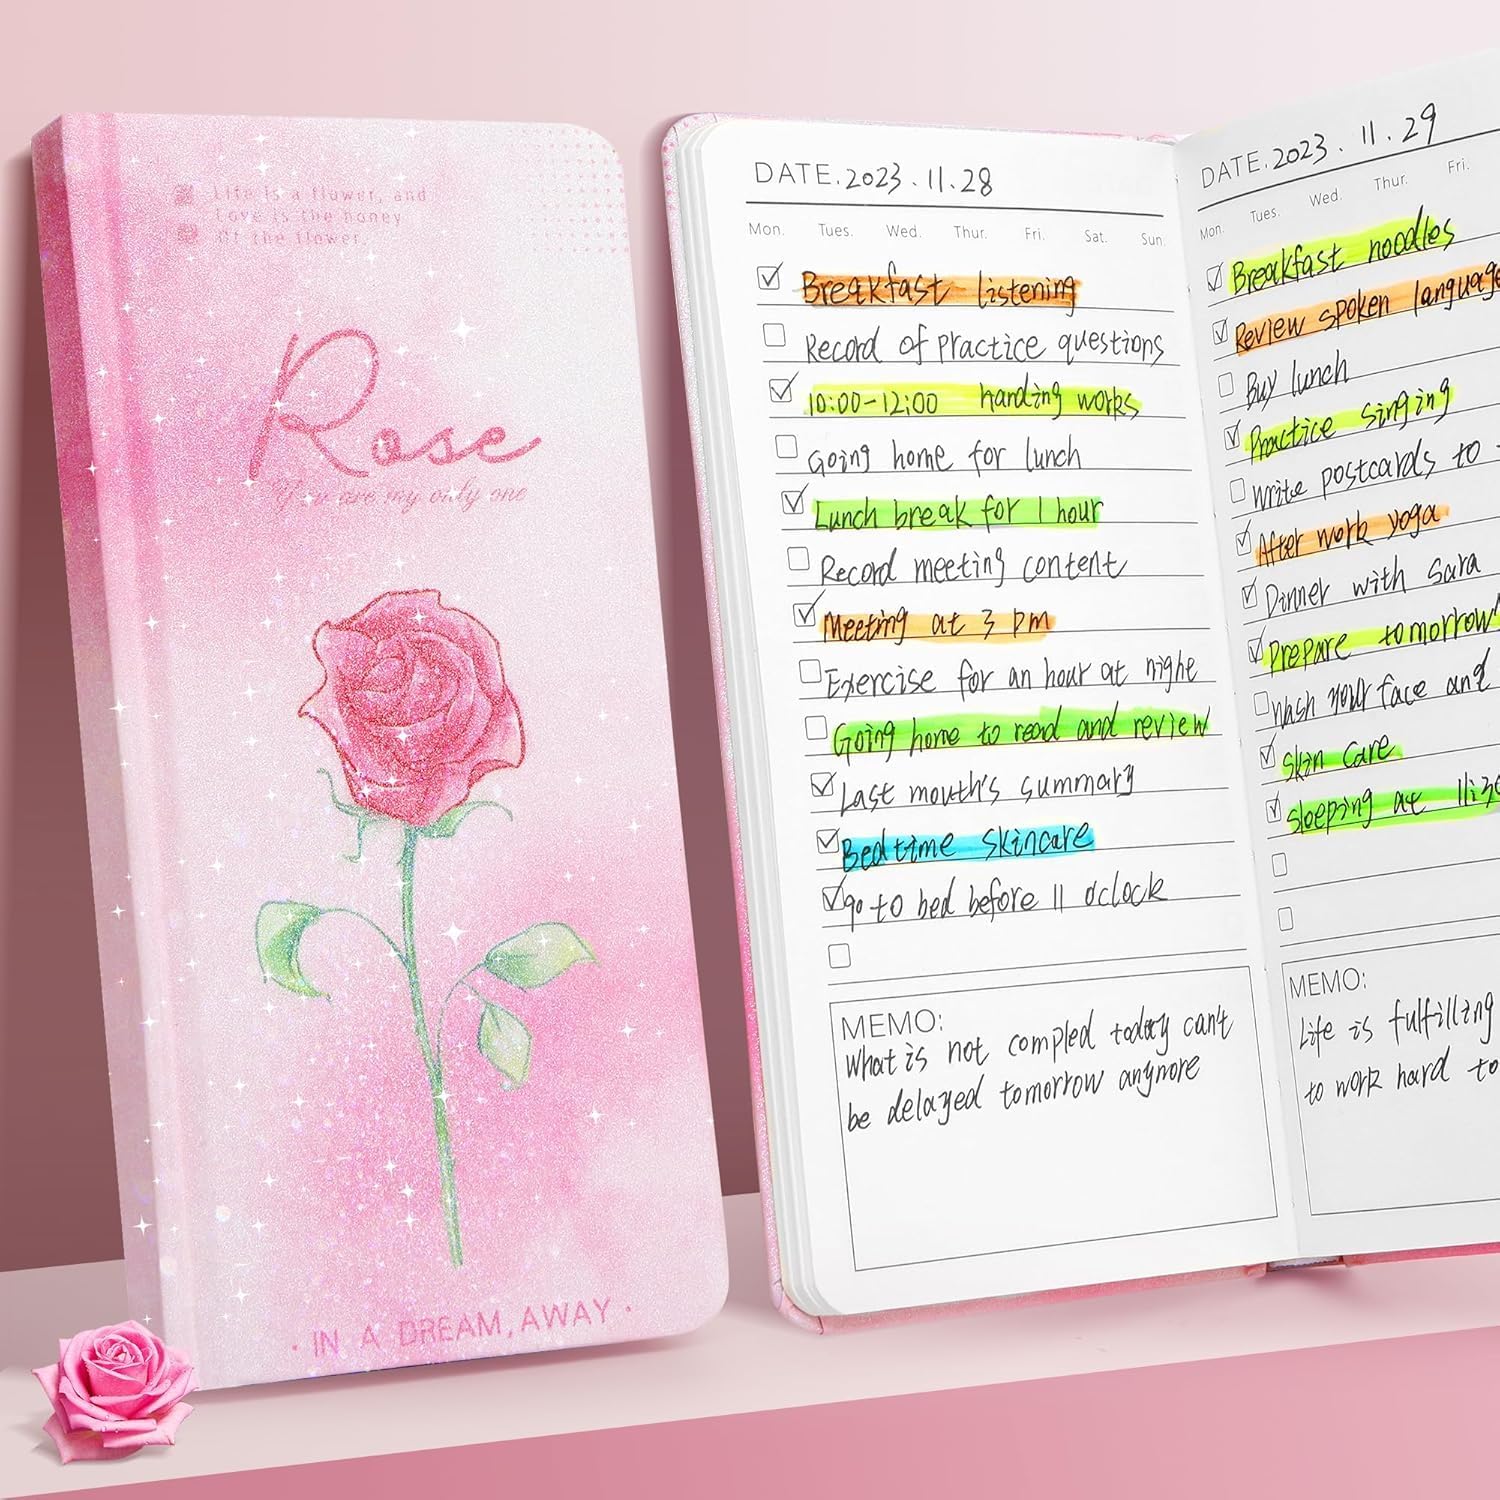 Life is a flower, and
Love is the honey
Of the flower.
Rose
You are my only one
· IN A DREAM, AWAY ·
DATE. 2023.11.28
Mon. Tues. Wed. Thur. Fri. Sat. Sun.
Breakfast listening
Record of practice questions
10:00-12:00 handing works
Going home for lunch
Lunch break for 1 hour
Record meeting content
Meeting at 3 pm
Exercise for an hour at nighe
Going home to read and review
Last mouth's summary
Bedtime skincare
go to bed before 11 o'clock
MEMO:
What is not compled today can't
be delayed tomorrow anymore
DATE. 2023.11.29
Mon. Tues. Wed. Thur. Fri.
Breakfast noodles
Review spoken language
Buy lunch
Practice singing
Write postcards to
After work yoga
Dinner with Sara
Prepare tomorrow'
Wash your face and
Skin care
Sleeping at 11:30
MEMO:
Life is fulfilling
to work hard to